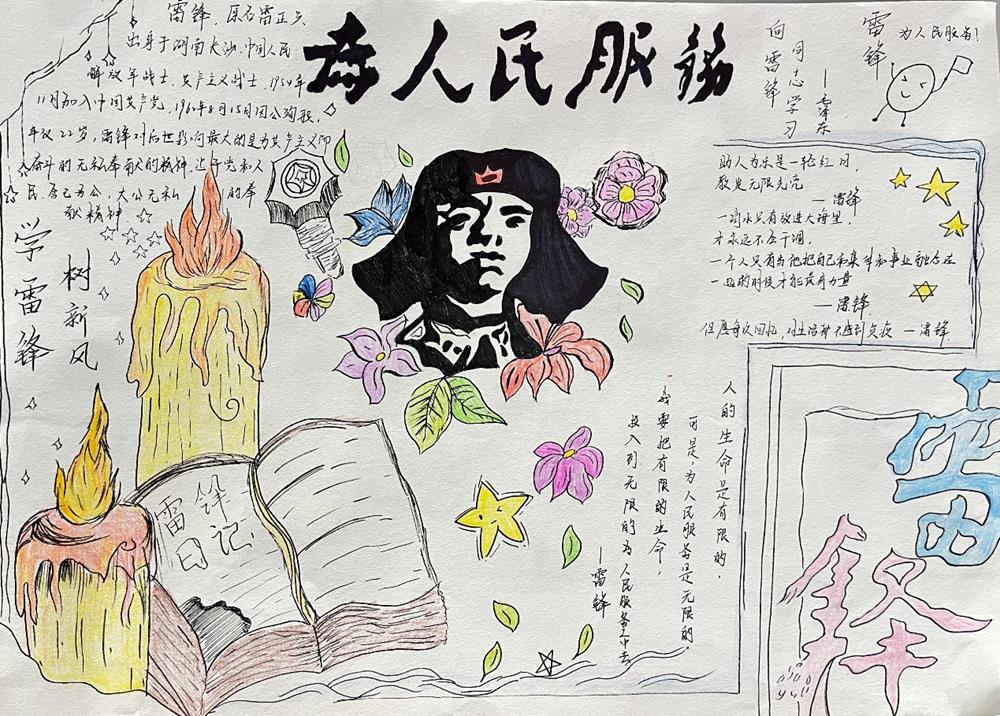 为人民服務
雷锋,原名雷正兴
出身于湖南长沙.中国人民
解放军战士.共产主义战士,1954年
11月加入中国共产党.1962年8月15日因公殉职,
年仅22岁,雷锋对后世影响最大的是为共产主义而
奋斗的无私奉献的精神,
民,舍己为公,大公无私 的奉
献精神
学雷锋
树新风
向雷锋
同志学习
—毛泽东
雷锋
为人民服务!
助人为乐是一轮红日,
散发无限光亮
—雷锋
一滴水只有放进大海里,
才永远不会干涸,
一个人只有当他把自己和集体和事业融合在
一起的时候才能最有力量
—雷锋.
但愿每次回忆,对生活都不感到负疚 —雷锋.
人的生命是有限的,
可是,为人民服务是无限的.
我要把有限的生命,
投入到无限的为人民服务之中去
—雷锋
雷锋
日记
雷
锋